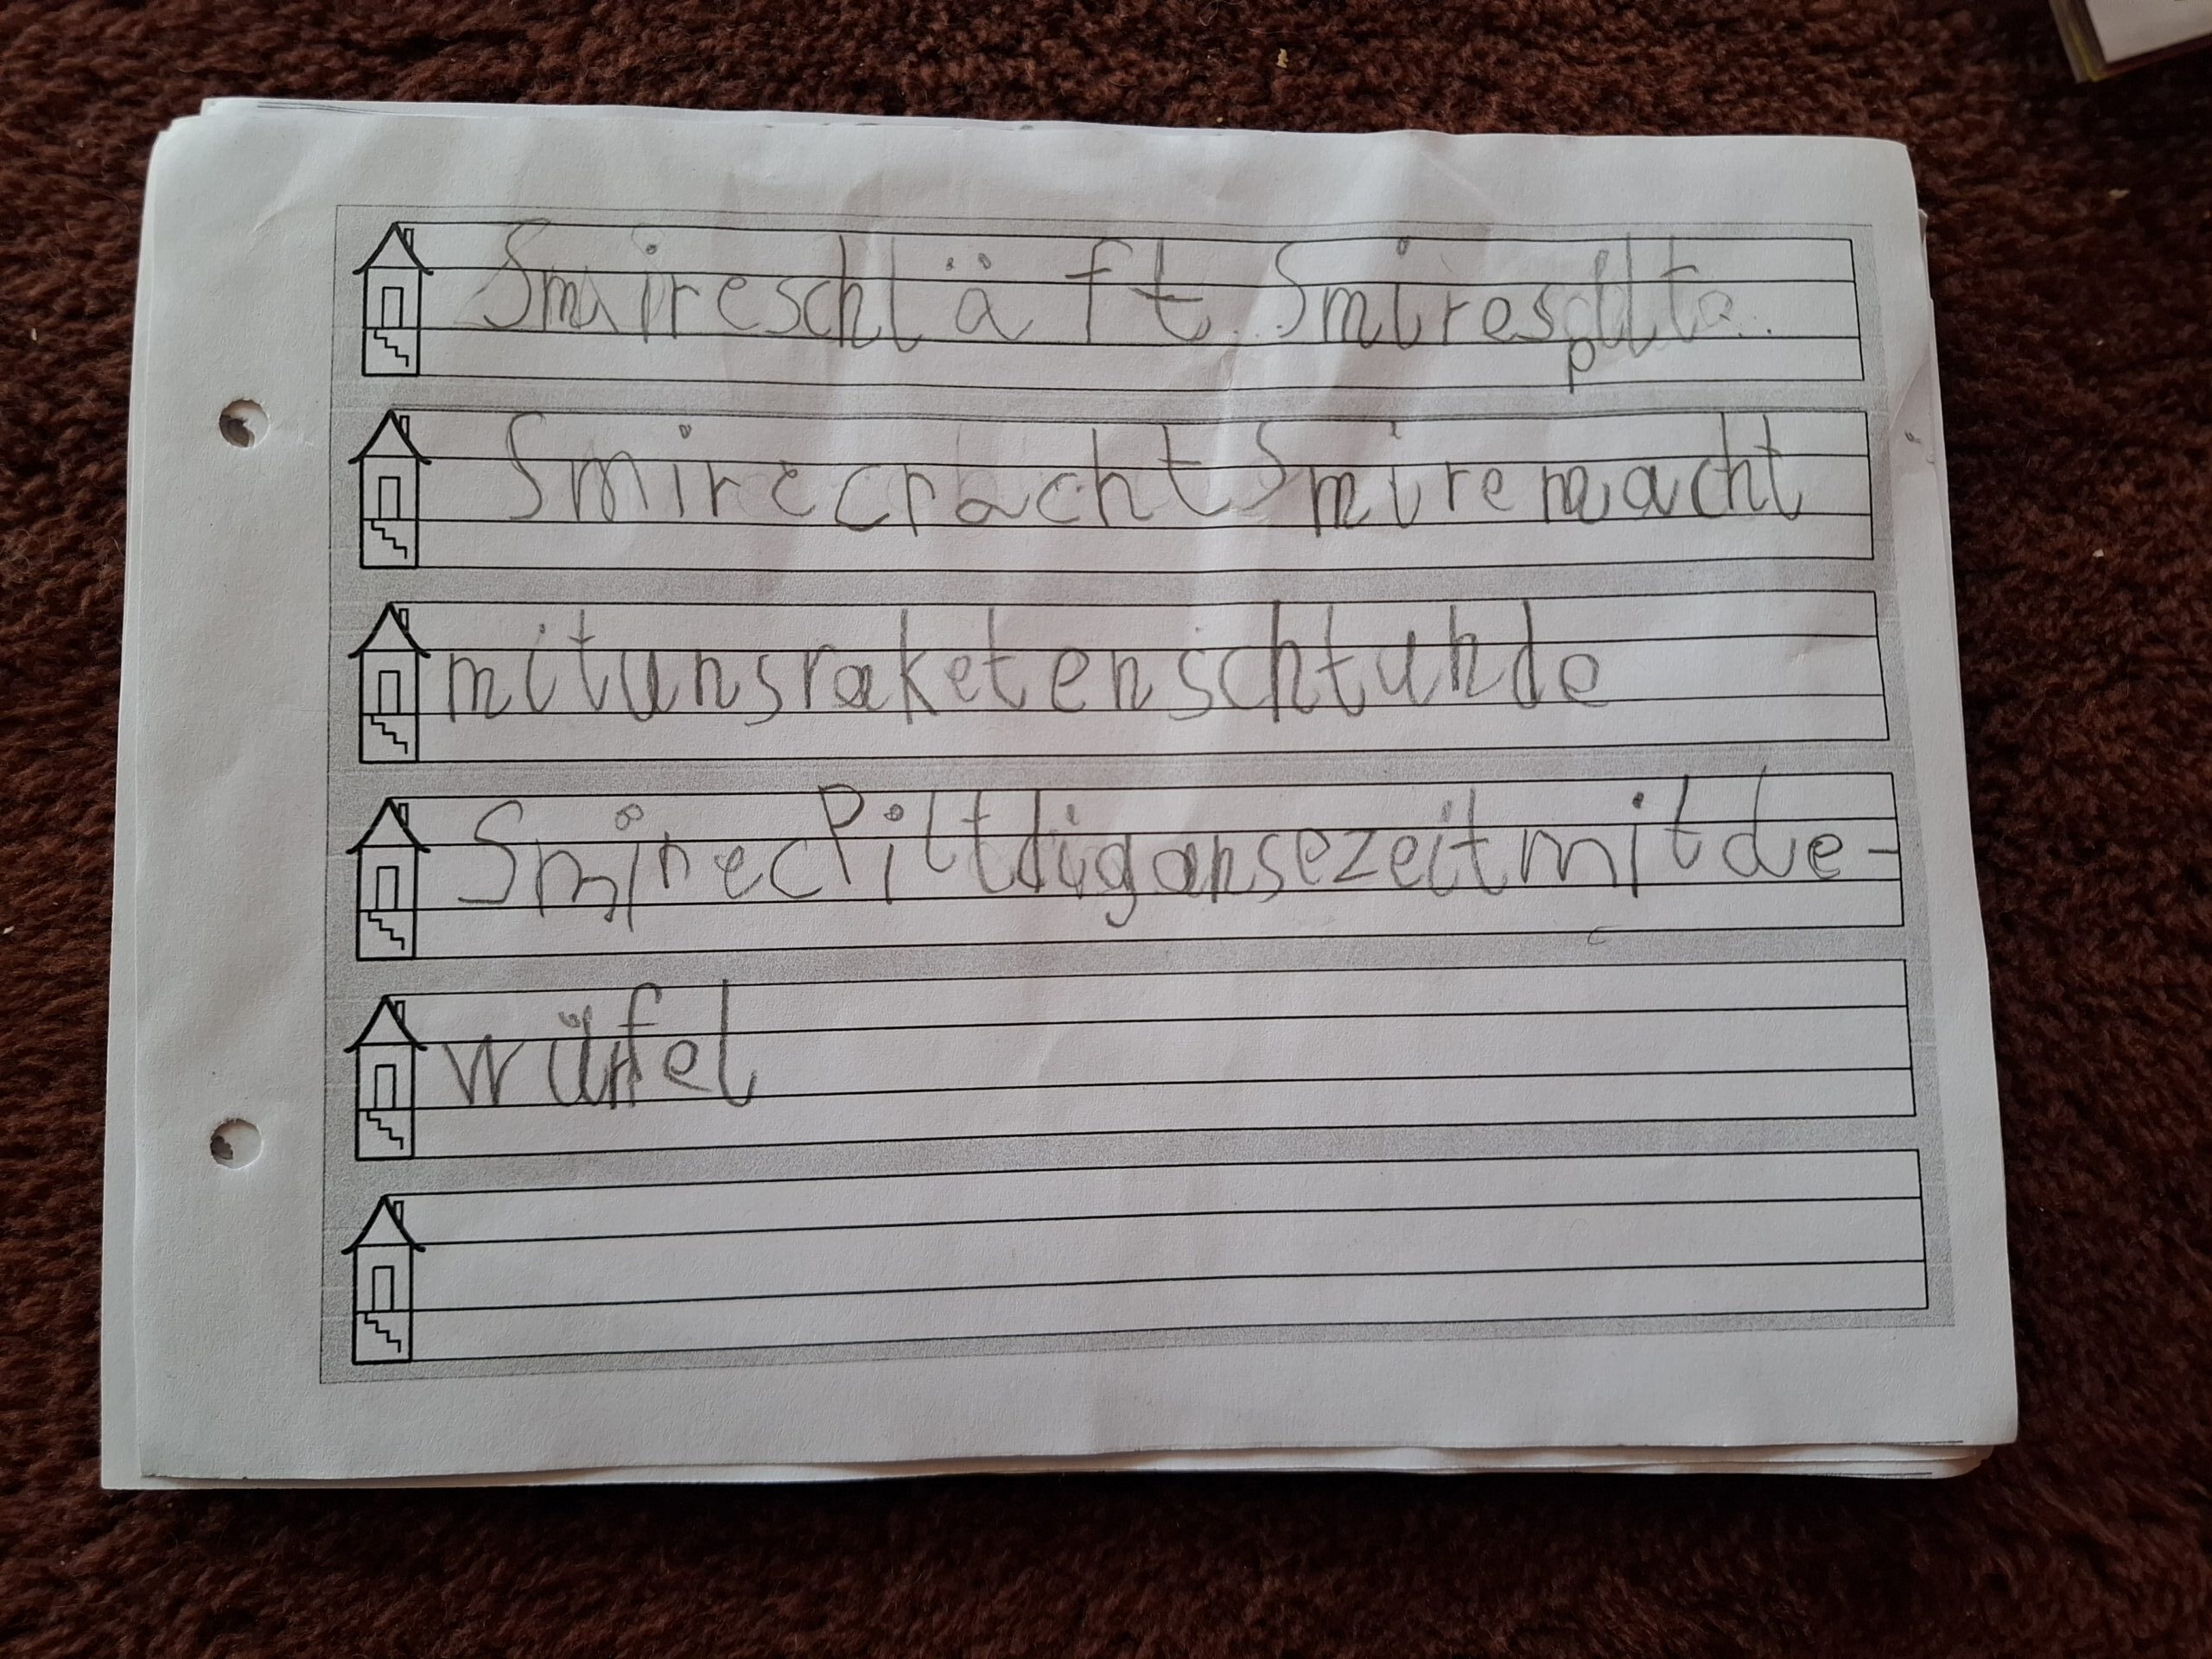 Smireschläft. Smire
Smirecracht Smiremacht
mitunsraketenschtunde
Smirecpiltdigansezeitmitde-
würfel